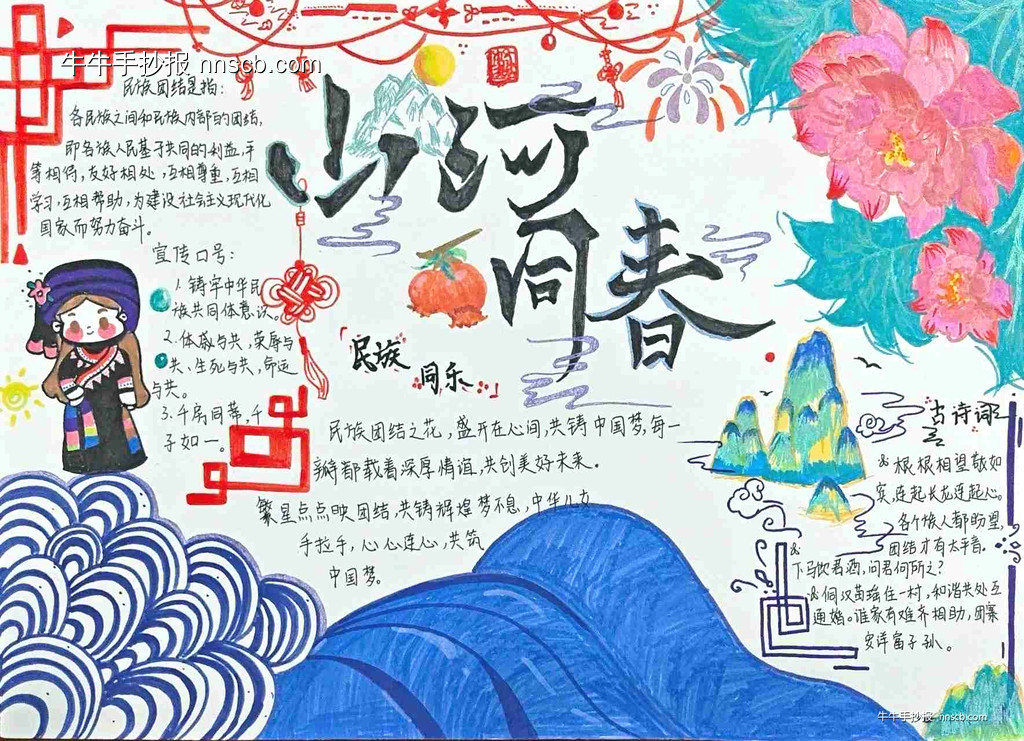 牛牛手抄报 nnscb.com
民族团结是指:
各民族之间和民族内部的团结,
即各族人民基于共同的利益,平
等相待,友好相处,互相尊重,互相
学习,互相帮助,为建设社会主义现代化
国家而努力奋斗。
宣传口号:
1.铸牢中华民
族共同体意识。
2.休戚与共,荣辱与
共、生死与共,命运
与共。
3.千房同蒂,千
子如一。
山河
同春
「民族
同乐」
民族团结之花,盛开在心间,共铸中国梦,每一
瓣都载着深厚情谊,共创美好未来。
繁星点点映团结,共铸辉煌梦不息,中华儿女
手拉手,心心连心,共筑
中国梦。
古诗词
& 根根相望敬如
宾,连起长龙连起心。
各个族人都盼望,
团结才有太平音。
&
下马饮君酒,问君何所之?
& 侗汉苗瑶住一村,和谐共处互
通婚。谁家有难齐相助,团寨
安详富子孙。
牛牛手抄报 nnscb.com